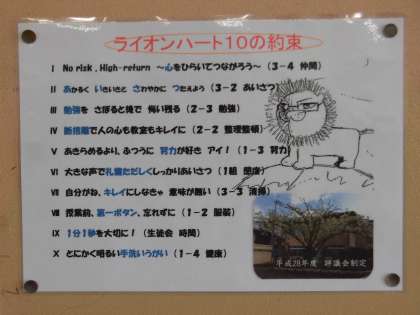 ライオンハート10の約束
Ⅰ No risk、High-return ～心をひらいてつながろう～（3－4 仲間）
Ⅱ あかるく いきいきと さわやかに つたえよう（3－2 あいさつ）
Ⅲ 勉強を さぼると後で 悔い残る（2－3 勉強）
Ⅳ 断捨離で人の心も教室もキレイに（2－2 整理整頓）
Ⅴ あきらめるより、ふつうに 努力が好き アイ！（1－3 努力）
Ⅵ 大きな声で礼儀ただしくしっかりあいさつ（1組 態度）
Ⅶ 自分がね、キレイにしなきゃ 意味が無い（3－3 清掃）
Ⅷ 授業前、第一ボタン、忘れずに（1－2 服装）
Ⅸ 1分1秒を大切に！（生徒会 時間）
Ⅹ とにかく明るい手洗いうがい（1－4 健康）
平成28年度 評議会制定